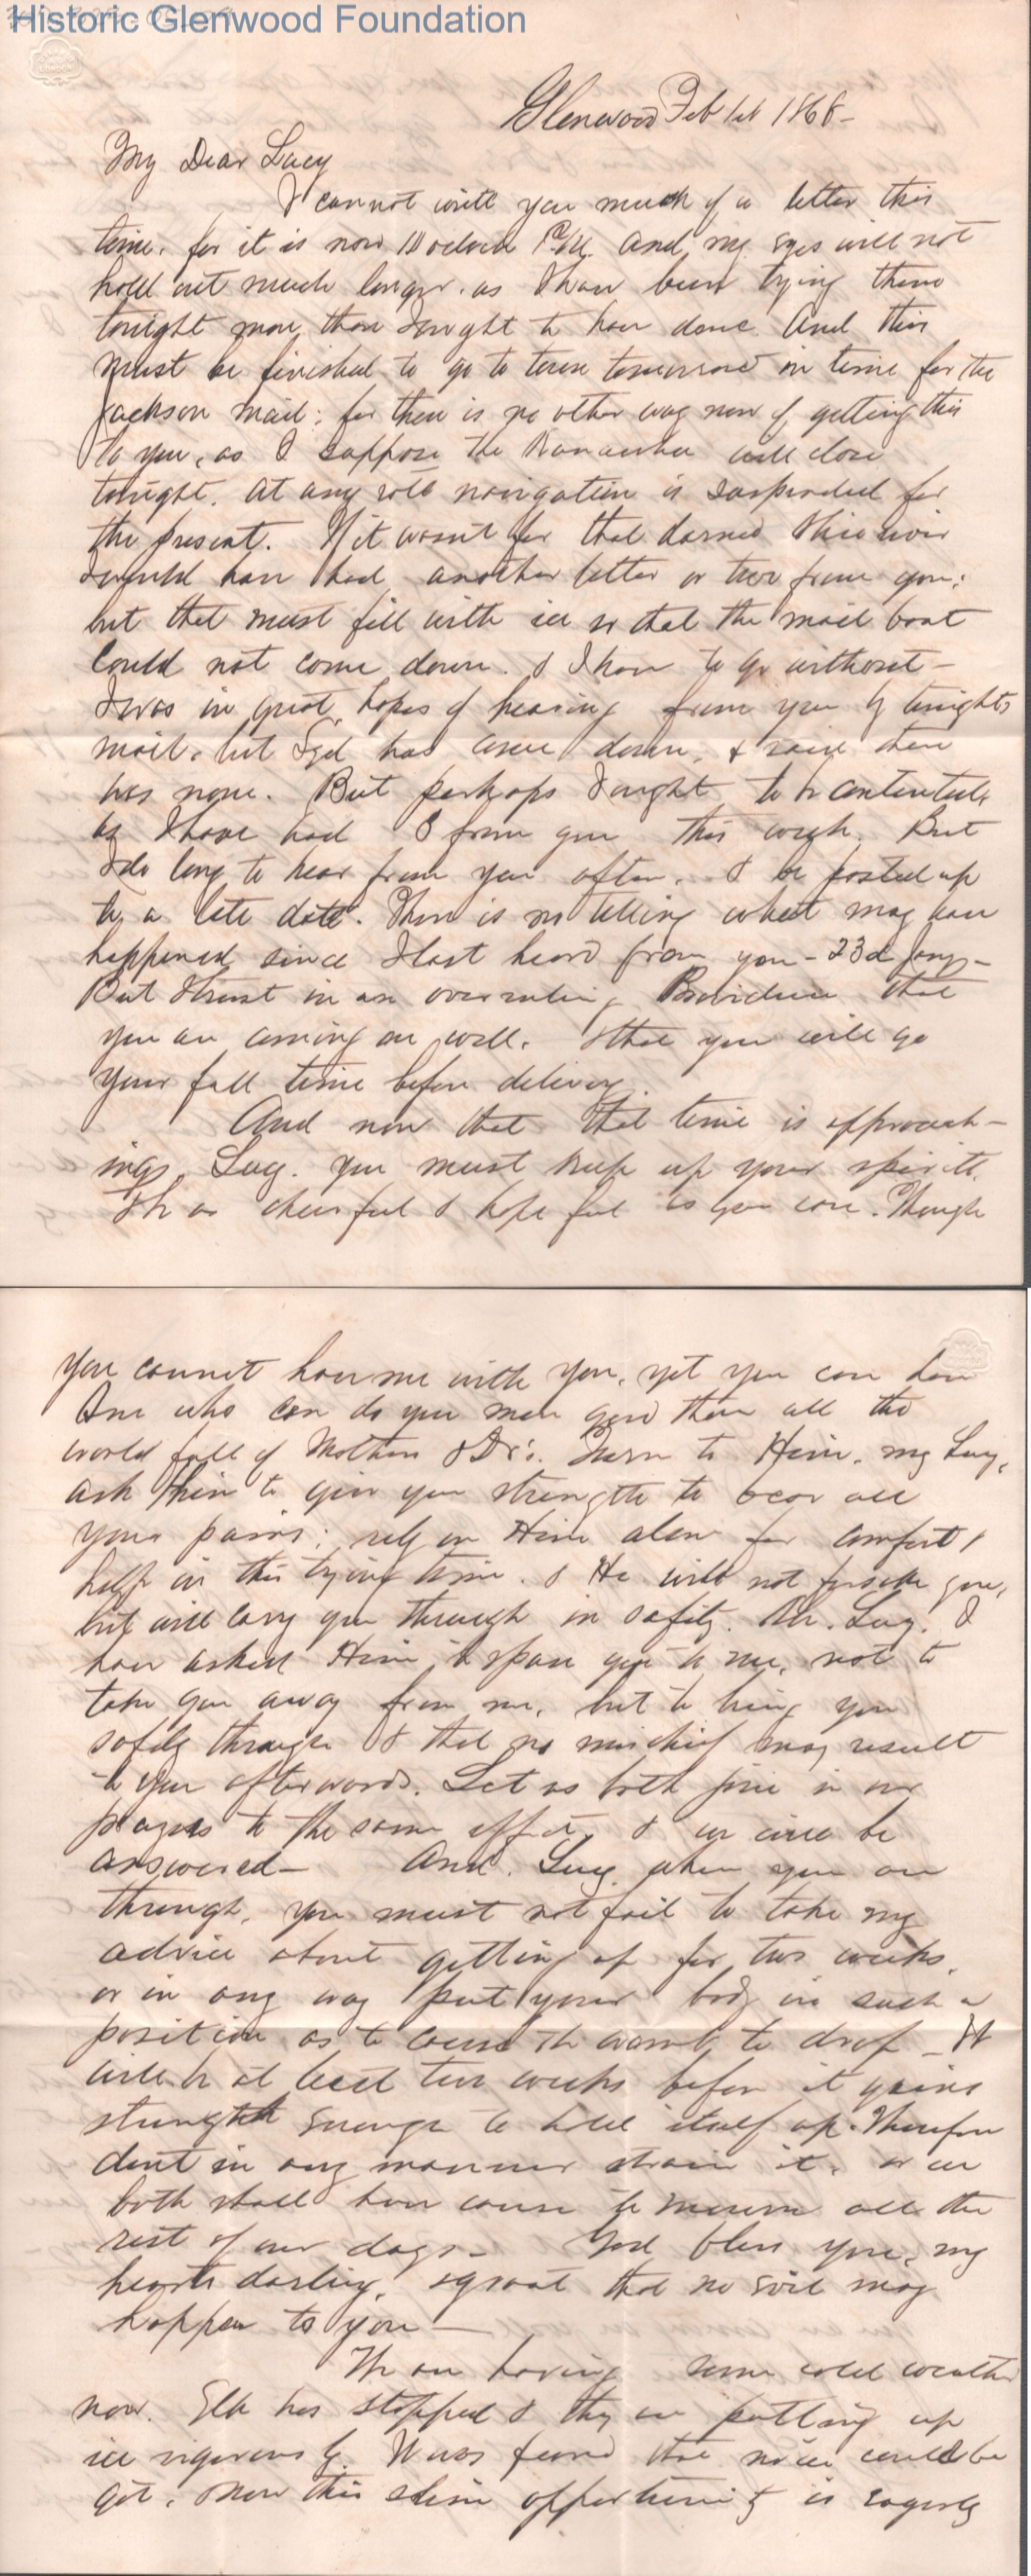 Historic Glenwood Foundation
LONDON
Glenwood Feb 1st 1868-
My Dear Lucy
I cannot write you much of a letter this
time, for it is now 10 oclock P.M. and my eyes will not
hold out much longer, as I have been trying them
tonight more than I ought to have done. And this
must be finished to go to town tomorrow in time for the
Jackson mail; for there is no other way now of getting this
to you, as I suppose the Kanawha will close
tonight. At any rate navigation is suspended for
the present. If it wasn't for that darned Ohio river
I would have had another letter or two from you;
but that must fill with ice so that the mail boat
could not come down. & I have to go without-
I was in great hopes of hearing from you by tonights
mail, but Syd has come down, & said there
was none. But perhaps I ought to be contented,
as I have had from you this week. But
I do long to hear from you often, & be posted up
to a late date. There is no telling what may have
happened since I last heard from you - 23d Jany-
But I trust in an overruling Providence that
you are coming on well, & that you will go
your full time before delivery.
And now that that time is approach-
ing, Lucy, you must keep up your spirits,
& be as cheerful & hopeful as you can. Though
you cannot have me with you, yet you can have
One who can do you more good than all the
world full of Mothers & Dr's. Turn to Him, my Lucy,
ask Him to give you strength to bear all
your pains; rely on Him alone for comfort &
help in this trying time, & He will not forsake you,
but will carry you through in safety. Oh, Lucy, I
have asked Him to spare you to me, not to
take you away from me, but to bring you
safely through & that no mischief may result
to you afterwards. Let us both join in our
prayers to the same effect, & we will be
answered- And, Lucy, when you are
through, you must not fail to take my
advice about getting up for two weeks,
or in any way put your body in such a
position as to cause the womb to drop - It
will be at least two weeks before it gains
strength enough to hold itself up. Therefore
don't in any manner strain it, or we
both shall have cause to mourn all the
rest of our days- God bless you, my
heart's darling, & grant that no evil may
happen to you-
We are having some cold weather
now. Elk has stopped & they are putting up
ice vigorously. It was feared that no ice could be
got, & now this opportunity is eagerly